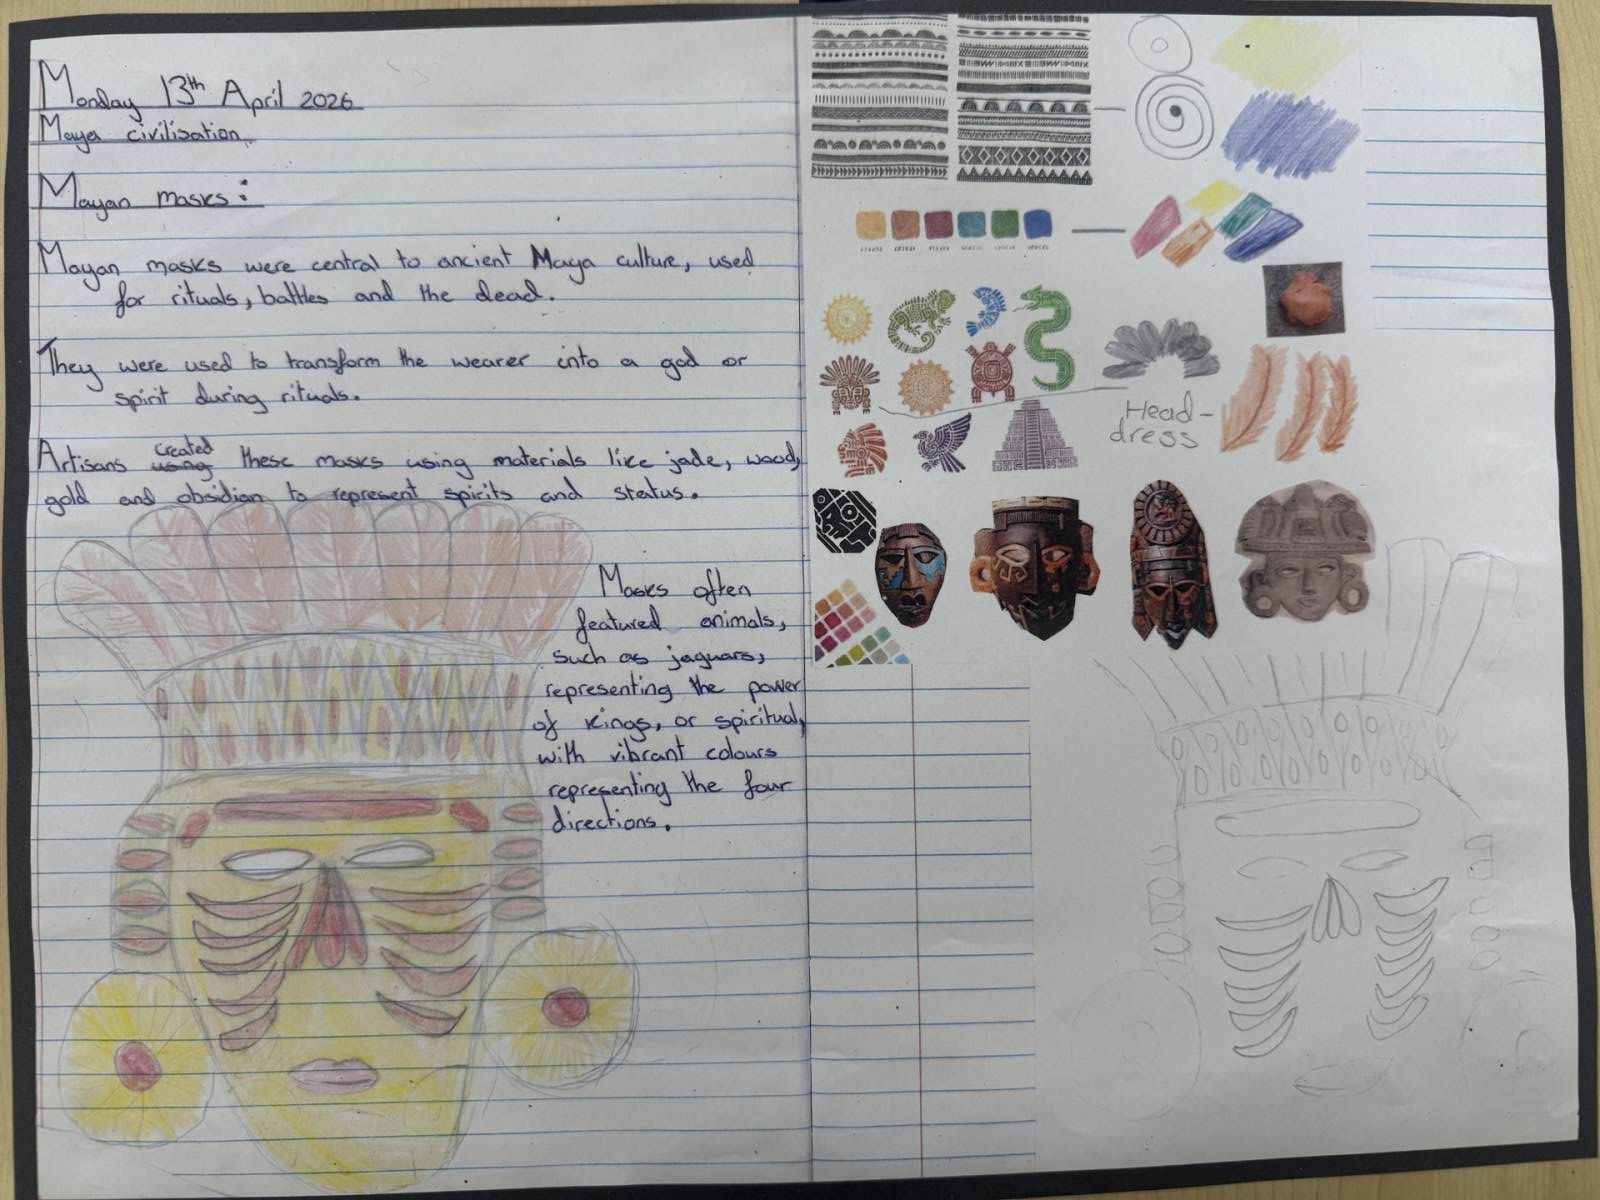 Monday 13th April 2026
Maya civilisation
Mayan masks:
Mayan masks were central to ancient Maya culture, used
for rituals, battles and the dead.
They were used to transform the wearer into a god or
spirit during rituals.
created
Artisans using these masks using materials like jade, wood,
gold and obsidian to represent spirits and status.
Masks often
featured animals,
such as jaguars,
representing the power
of kings, or spiritual,
with vibrant colours
representing the four
directions.
Head-
dress